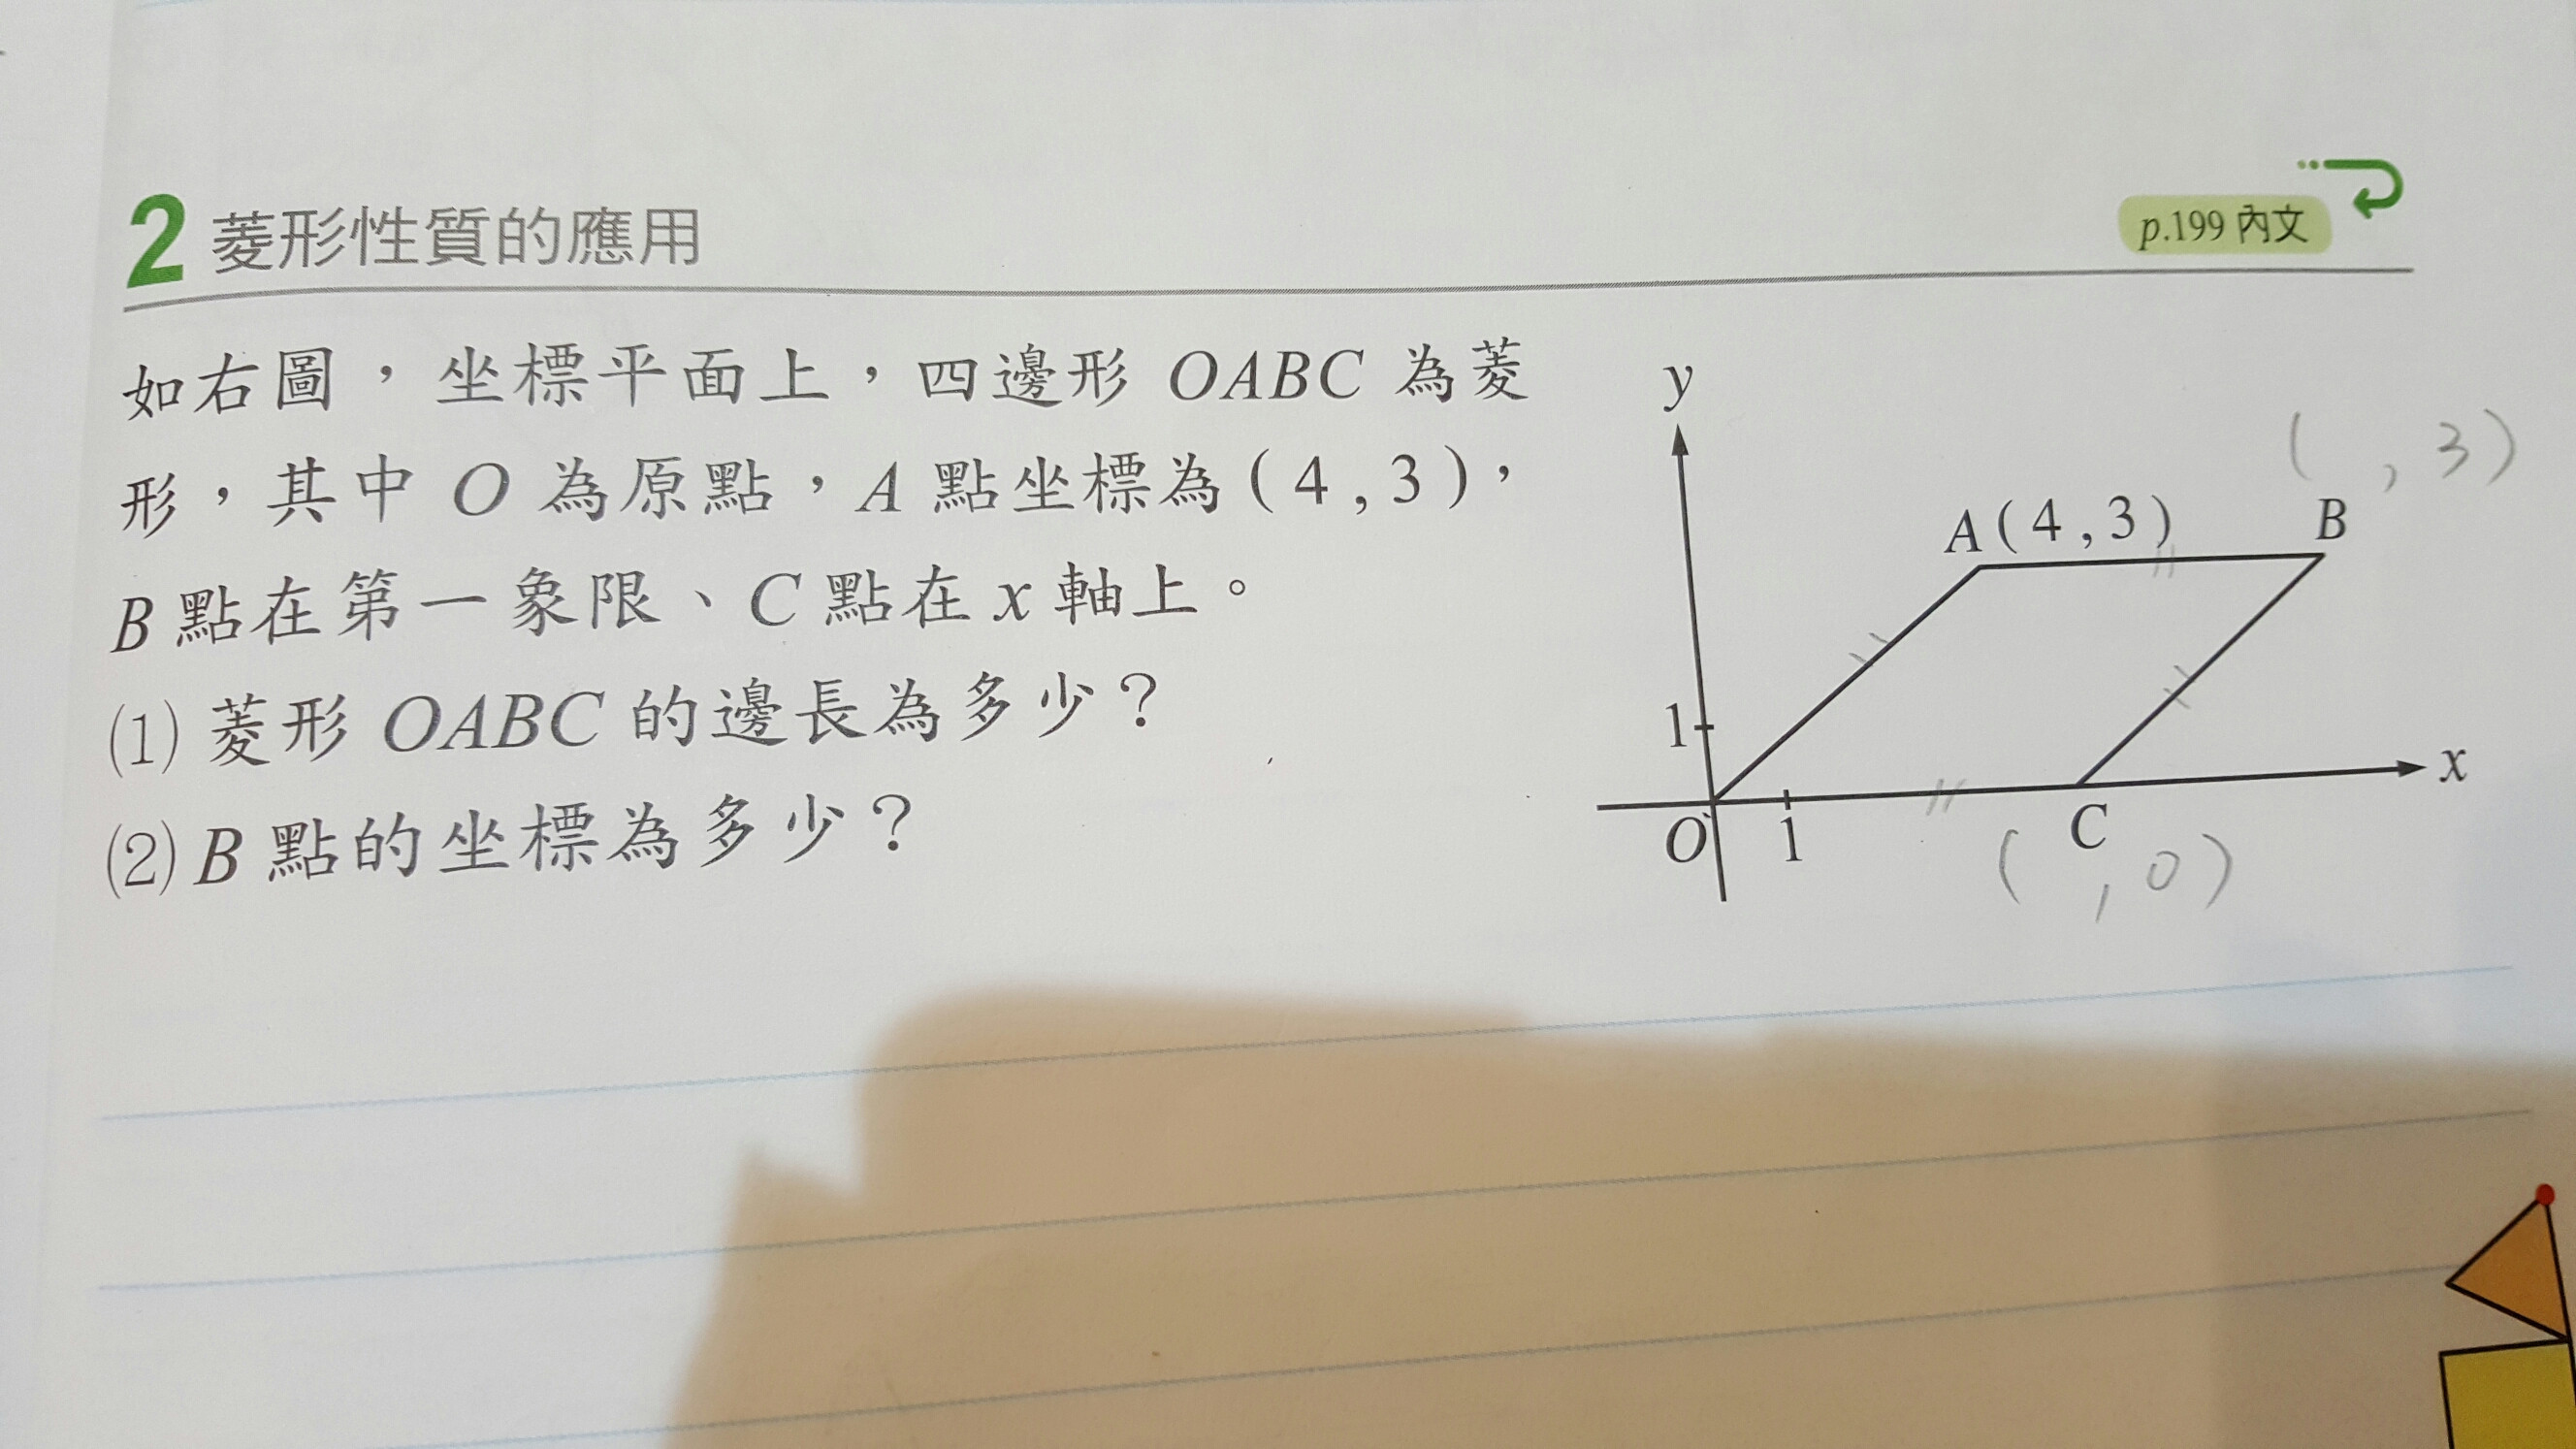 2 菱形性質的應用
p.199 內文
如右圖，坐標平面上，四邊形 OABC 為菱
形，其中 O 為原點，A 點坐標為（4 , 3），
B 點在第一象限、C 點在 x 軸上。
(1) 菱形 OABC 的邊長為多少？
(2) B 點的坐標為多少？
y
( , 3)
A ( 4 , 3 )
B
1
x
O
1
C
( , 0)